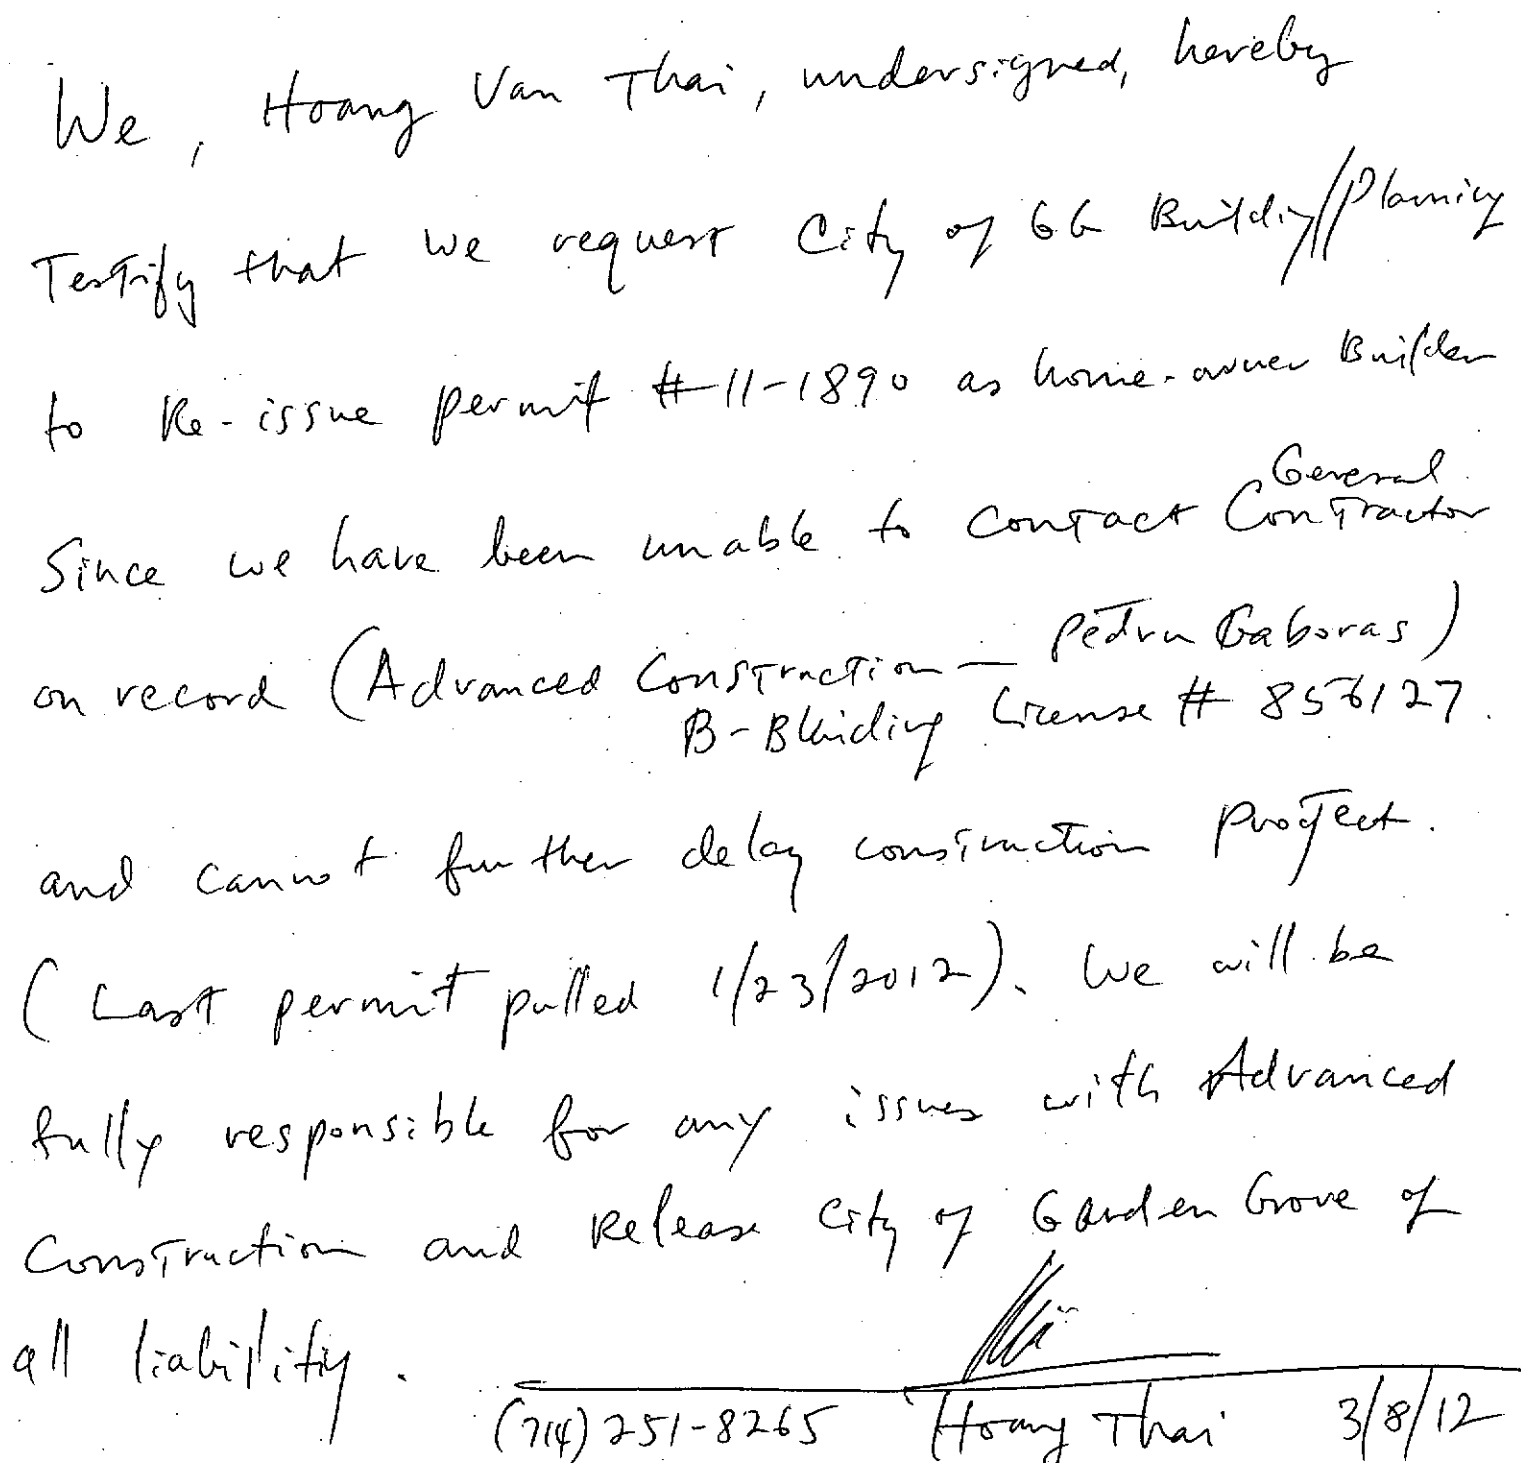 We, Hoang Van Thai, undersigned, hereby
Testify that we request City of GG Building//Planning
to Re-issue permit #11-1890 as home-owner Builder
General
Since we have been unable to contact Contractor
on record (Advanced Construction - Gaboras)
B-Bluiding License #
and cannot further delay construction project.
(Last permit pulled 1/23/2012). We will be
fully responsible for any issues with Advanced
Construction and Release City of Garden Grove of
all liability.
(714) 251-8265 Hoang Thai 3/8/12